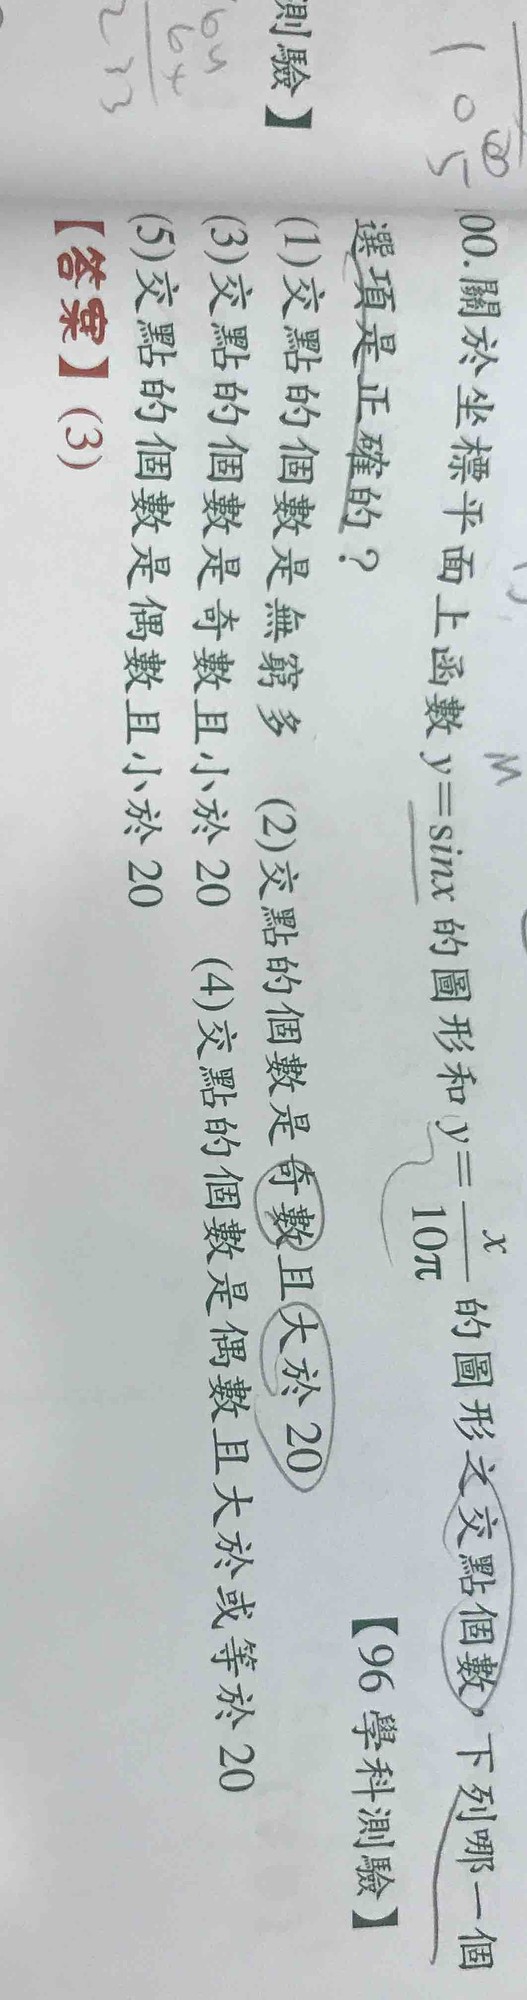 測驗】
100.關於坐標平面上函數 y=sinx 的圖形和 y=x/10π 的圖形之交點個數，下列哪一個
選項是正確的？ 【96 學科測驗】
(1)交點的個數是無窮多 (2)交點的個數是奇數且大於 20
(3)交點的個數是奇數且小於 20 (4)交點的個數是偶數且大於或等於 20
(5)交點的個數是偶數且小於 20
【答案】(3)